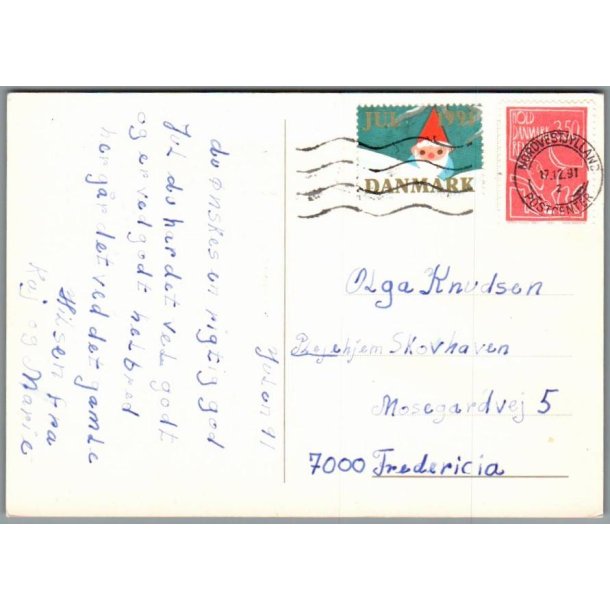 JUL 1991
DANMARK
HOLD
DANMARK
REN
3.50
NORDVESTJYLLANDS
17.12.91
2
POSTCENTER
Olga Knudsen
Plejehjem Skovhaven
Mosegardvej 5
7000 Fredericia
Julen 91
du ønskes en rigtig god
Jul du har det vel godt
og er ved godt helbred
her går det ved det gamle
Hilsen fra
Kaj og Marie